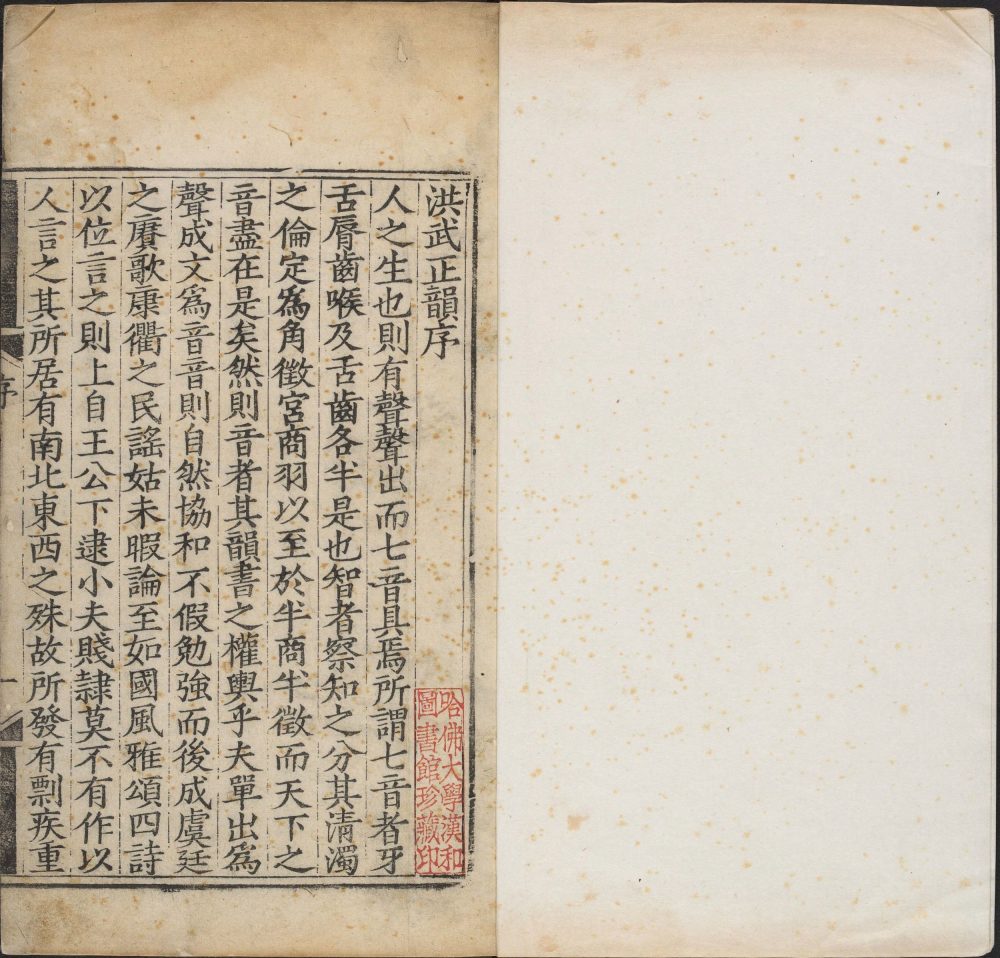 洪武正韻序
人之生也則有聲聲出而七音具焉所謂七音者牙
舌脣齒喉及舌齒各半是也智者察知之分其清濁
之倫定爲角徵宮商羽以至於半商半徵而天下之
音盡在是矣然則音者其韻書之權輿乎夫單出爲
聲成文爲音音則自然協和不假勉強而後成虞廷
之賡歌康衢之民謠姑未暇論至如國風雅頌四詩
以位言之則上自王公下逮小夫賤隸莫不有作以
人言之其所居有南北東西之殊故所發有剽疾重
序
一
哈佛大學漢和
圖書館珍藏印